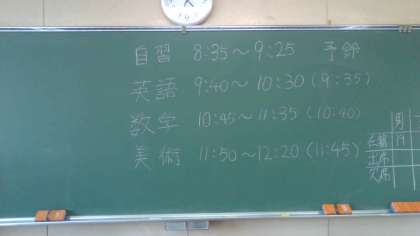 自習 8:35～9:25 予鈴
英語 9:40～10:30 (9:35)
数学 10:45～11:35 (10:40)
美術 11:50～12:20 (11:45)
男
在籍 19
出席
欠席